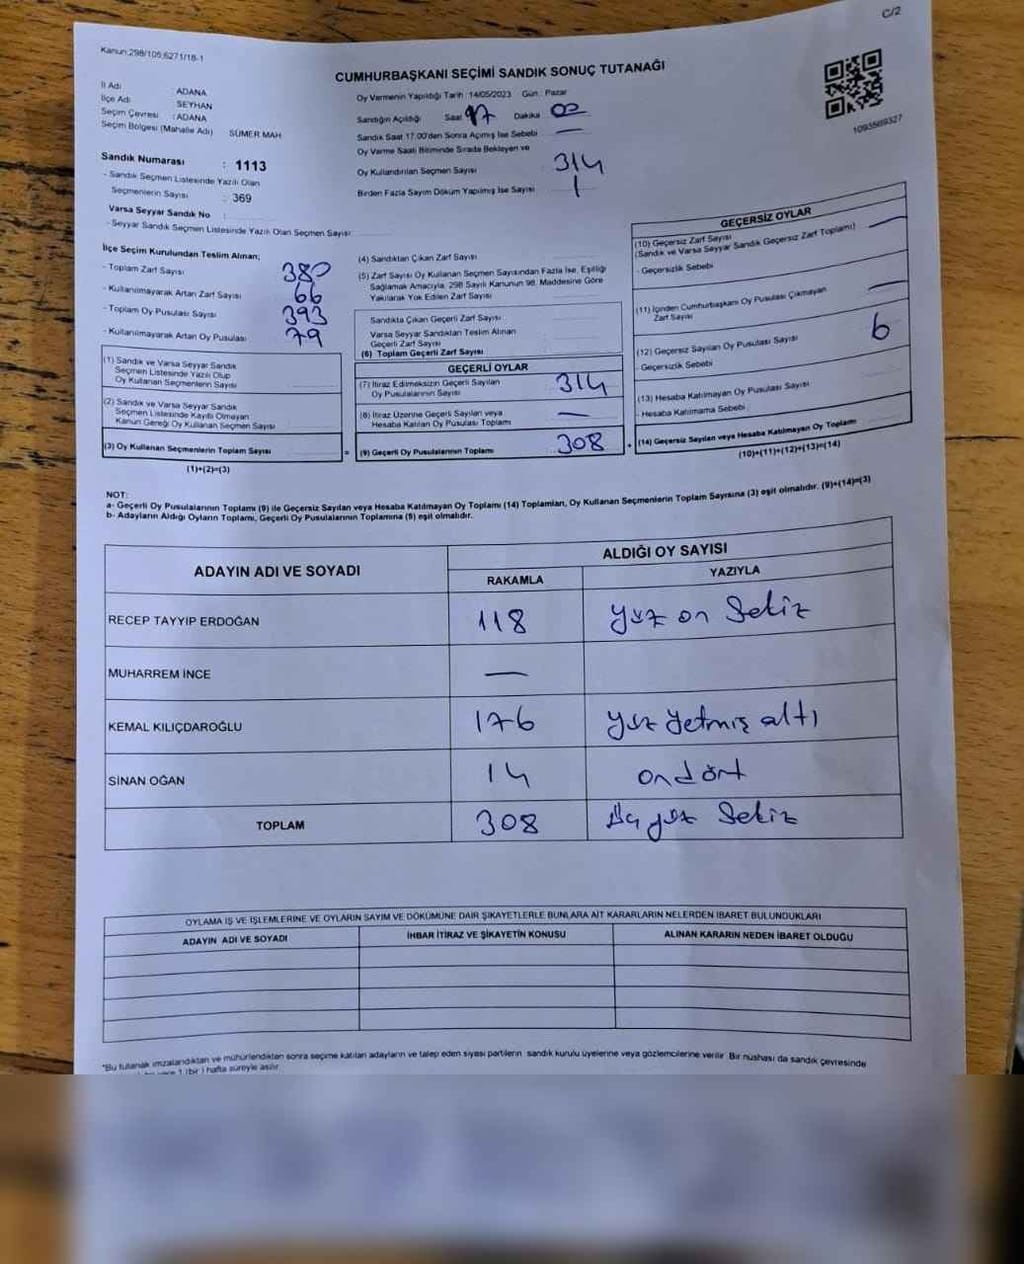 C/2
Kanun:298/105;6271/18-1
CUMHURBAŞKANI SEÇİMİ SANDIK SONUÇ TUTANAĞI
İl Adı : ADANA
İlçe Adı SEYHAN
Seçim Çevresi : ADANA
Seçim Bölgesi (Mahalle Adı) SÜMER MAH
Sandık Numarası : 1113
- Sandık Seçmen Listesinde Yazılı Olan
Seçmenlerin Sayısı : 369
Varsa Seyyar Sandık No :
- Seyyar Sandık Seçmen Listesinde Yazılı Olan Seçmen Sayısı:
Oy Vermenin Yapıldığı Tarih :14/05/2023 Gün : Pazar
Sandığın Açıldığı Saat 17 Dakika 02
Sandık Saat 17.00'den Sonra Açımış İse Sebebi —
Oy Verme Saati Bitiminde Sırada Bekleyen ve
Oy Kullandırılan Seçmen Sayısı 314
Birden Fazla Sayım Döküm Yapılmış İse Sayısı 1
1093569327
İlçe Seçim Kurulundan Teslim Alınan;
- Toplam Zarf Sayısı 380
- Kullanılmayarak Artan Zarf Sayısı 66
- Toplam Oy Pusulası Sayısı 393
- Kullanılmayarak Artan Oy Pusulası 79
(1) Sandık ve Varsa Seyyar Sandık
Seçmen Listesinde Yazılı Olup
Oy Kullanan Seçmenlerin Sayısı
(2) Sandık ve Varsa Seyyar Sandık
Seçmen Listesinde Kayıtlı Olmayan
Kanun Gereği Oy Kullanan Seçmen Sayısı
(3) Oy Kullanan Seçmenlerin Toplam Sayısı =
(1)+(2)=(3)
(4) Sandıktan Çıkan Zarf Sayısı
(5) Zarf Sayısı Oy Kullanan Seçmen Sayısından Fazla İse, Eşitliği
Sağlamak Amacıyla, 298 Sayılı Kanunun 98. Maddesine Göre
Yakılarak Yok Edilen Zarf Sayısı
Sandıkta Çıkan Geçerli Zarf Sayısı
Varsa Seyyar Sandıktan Teslim Alınan
Geçerli Zarf Sayısı
(6) Toplam Geçerli Zarf Sayısı
GEÇERLİ OYLAR
(7) İtiraz Edilmeksizin Geçerli Sayılan
Oy Pusulalarının Sayısı 314
(8) İtiraz Üzerine Geçerli Sayılan veya
Hesaba Katılan Oy Pusulası Toplamı —
(9) Geçerli Oy Pusulalarının Toplamı 308 +
GEÇERSİZ OYLAR
(10) Geçersiz Zarf Sayısı
(Sandık ve Varsa Seyyar Sandık Geçersiz Zarf Toplamı) —
- Geçersizlik Sebebi
(11) İçinden Cumhurbaşkanı Oy Pusulası Çıkmayan
Zarf Sayısı —
(12) Geçersiz Sayılan Oy Pusulası Sayısı 6
- Geçersizlik Sebebi
(13) Hesaba Katılmayan Oy Pusulası Sayısı
- Hesaba Katılmama Sebebi
(14) Geçersiz Sayılan veya Hesaba Katılmayan Oy Toplamı
(10)+(11)+(12)+(13)=(14)
NOT:
a- Geçerli Oy Pusulalarının Toplamı (9) ile Geçersiz Sayılan veya Hesaba Katılmayan Oy Toplamı (14) Toplamları, Oy Kullanan Seçmenlerin Toplam Sayısına (3) eşit olmalıdır. (9)+(14)=(3)
b- Adayların Aldığı Oyların Toplamı, Geçerli Oy Pusulalarının Toplamına (9) eşit olmalıdır.
ADAYIN ADI VE SOYADI ALDIĞI OY SAYISI
RAKAMLA YAZIYLA
RECEP TAYYIP ERDOĞAN 118 yüz on Sekiz
MUHARREM İNCE —
KEMAL KILIÇDAROĞLU 176 yüz yetmiş altı
SİNAN OĞAN 14 on dört
TOPLAM 308 üç yüz Sekiz
OYLAMA İŞ VE İŞLEMLERİNE VE OYLARIN SAYIM VE DÖKÜMÜNE DAİR ŞİKAYETLERLE BUNLARA AİT KARARLARIN NELERDEN İBARET BULUNDUKLARI
ADAYIN ADI VE SOYADI İHBAR İTİRAZ VE ŞİKAYETİN KONUSU ALINAN KARARIN NEDEN İBARET OLDUĞU
*Bu tutanak imzalandıktan ve mühürlendikten sonra seçime katılan adayların ve talep eden siyasi partilerin sandık kurulu üyelerine veya gözlemcilerine verilir. Bir nüshası da sandık çevresinde
1 (bir) hafta süreyle asılır